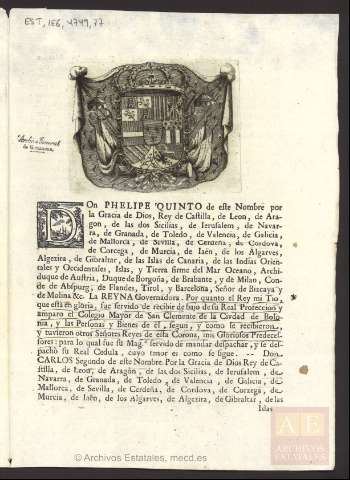 EST, LEG, 4749, 77
Archivo General
de Simancas
DOn PHELIPE QUINTO de este Nombre por
la Gracia de Dios, Rey de Castilla, de Leon, de Ara-
gon, de las dos Sicilias, de Ierusalem, de Navar-
ra, de Granada, de Toledo, de Valencia, de Galicia,
de Mallorca, de Sevilla, de Cerdeña, de Cordova,
de Corcega, de Murcia, de Iaén, de los Algarves,
Algezira, de Gibraltar, de las Islas de Canaria, de las Indias Orien-
tales y Occidentales, Islas, y Tierra firme del Mar Oceano, Archi-
duque de Austria, Duque de Borgoña, de Brabante, y de Milan, Con-
de de Abspurg, de Flandes, Tirol, y Barcelona, Señor de Biscaya y
de Molina &c. La REYNA Governadora. Por quanto el Rey mi Tio
que está en gloria, fue servido de recibir debajo de su Real Proteccion y
amparo el Colegio Mayor de San Clemente de la Civdad de Bolo-
nia, y las Personas y Bienes de él, segun, y como se recibieron,
y tuvieron otros Señores Reyes de esta Corona, mis Gloriosos Predeces-
sores: para lo qual fue su Mag.ᵈ servido de mandar despachar, y se des-
pachò su Real Cedula, cuyo tenor es como se sigue. -- Don
CARLOS Segundo de este Nombre Por la Gracia de Dios Rey de Cas-
tilla, de Leon, de Aragón, de las dos Sicilias, de Ierusalem, de
Navarra, de Granada, de Toledo, de Valencia, de Galicia, de
Mallorca, de Sevilla, de Cerdeña, de Cordova, de Corzega, de
Murcia, de Iaën, de los Algarves, de Algezira, de Gibraltar, de las
Islas
AE
ARCHIVOS
ESTATALES
© Archivos Estatales, mecd.es